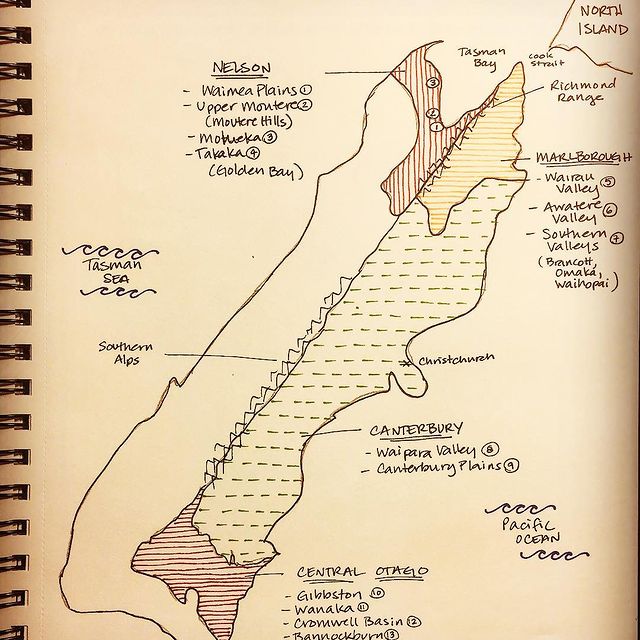 NORTH
ISLAND
Tasman
Bay
Cook
Strait
Richmond
Range
NELSON
- Waimea Plains ①
- Upper Moutere ②
(Moutere Hills)
- Motueka ③
- Takaka ④
(Golden Bay)
③
②
①
MARLBOROUGH
- Wairau
Valley ⑤
- Awatere
Valley ⑥
- Southern
Valleys ⑦
(Brancott,
Omaka,
Waihopai)
Tasman
SEA
Southern
Alps
Christchurch
CANTERBURY
- Waipara Valley ⑧
- Canterbury Plains ⑨
Pacific
OCEAN
CENTRAL OTAGO
- Gibbston ⑩
- Wanaka ⑪
- Cromwell Basin ⑫
- Bannockburn ⑬